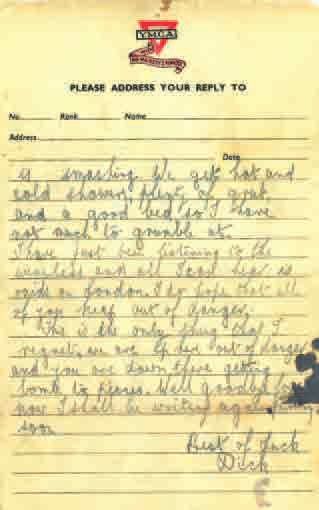 YMCA
WITH
HIS MAJESTY'S FORCES
PLEASE ADDRESS YOUR REPLY TO
No. Rank Name
Address
Date
is smashing. We get hot and
cold showers, plenty of grub,
and a good bed so I have
not much to grumble at.
I have just been listening to the
wireless and all I can hear is
raids on London. I do hope that all
of you keep out of danger.
This is the only thing that I
regret, we are up here out of danger
and you are down there getting
bomb to pieces. Well goodbye for
now I shall be writing again
soon.
Best of luck
Dick